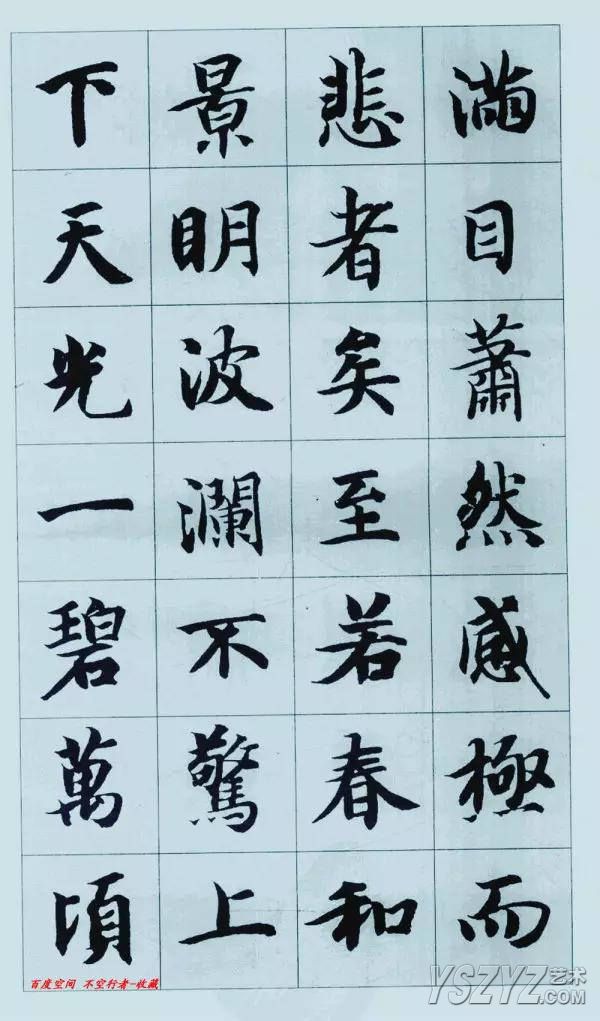 滿目蕭然感極而
悲者矣至若春和
景明波瀾不驚上
下天光一碧萬頃
百度空间 不空行者-收藏
YSZYZ艺术
.com